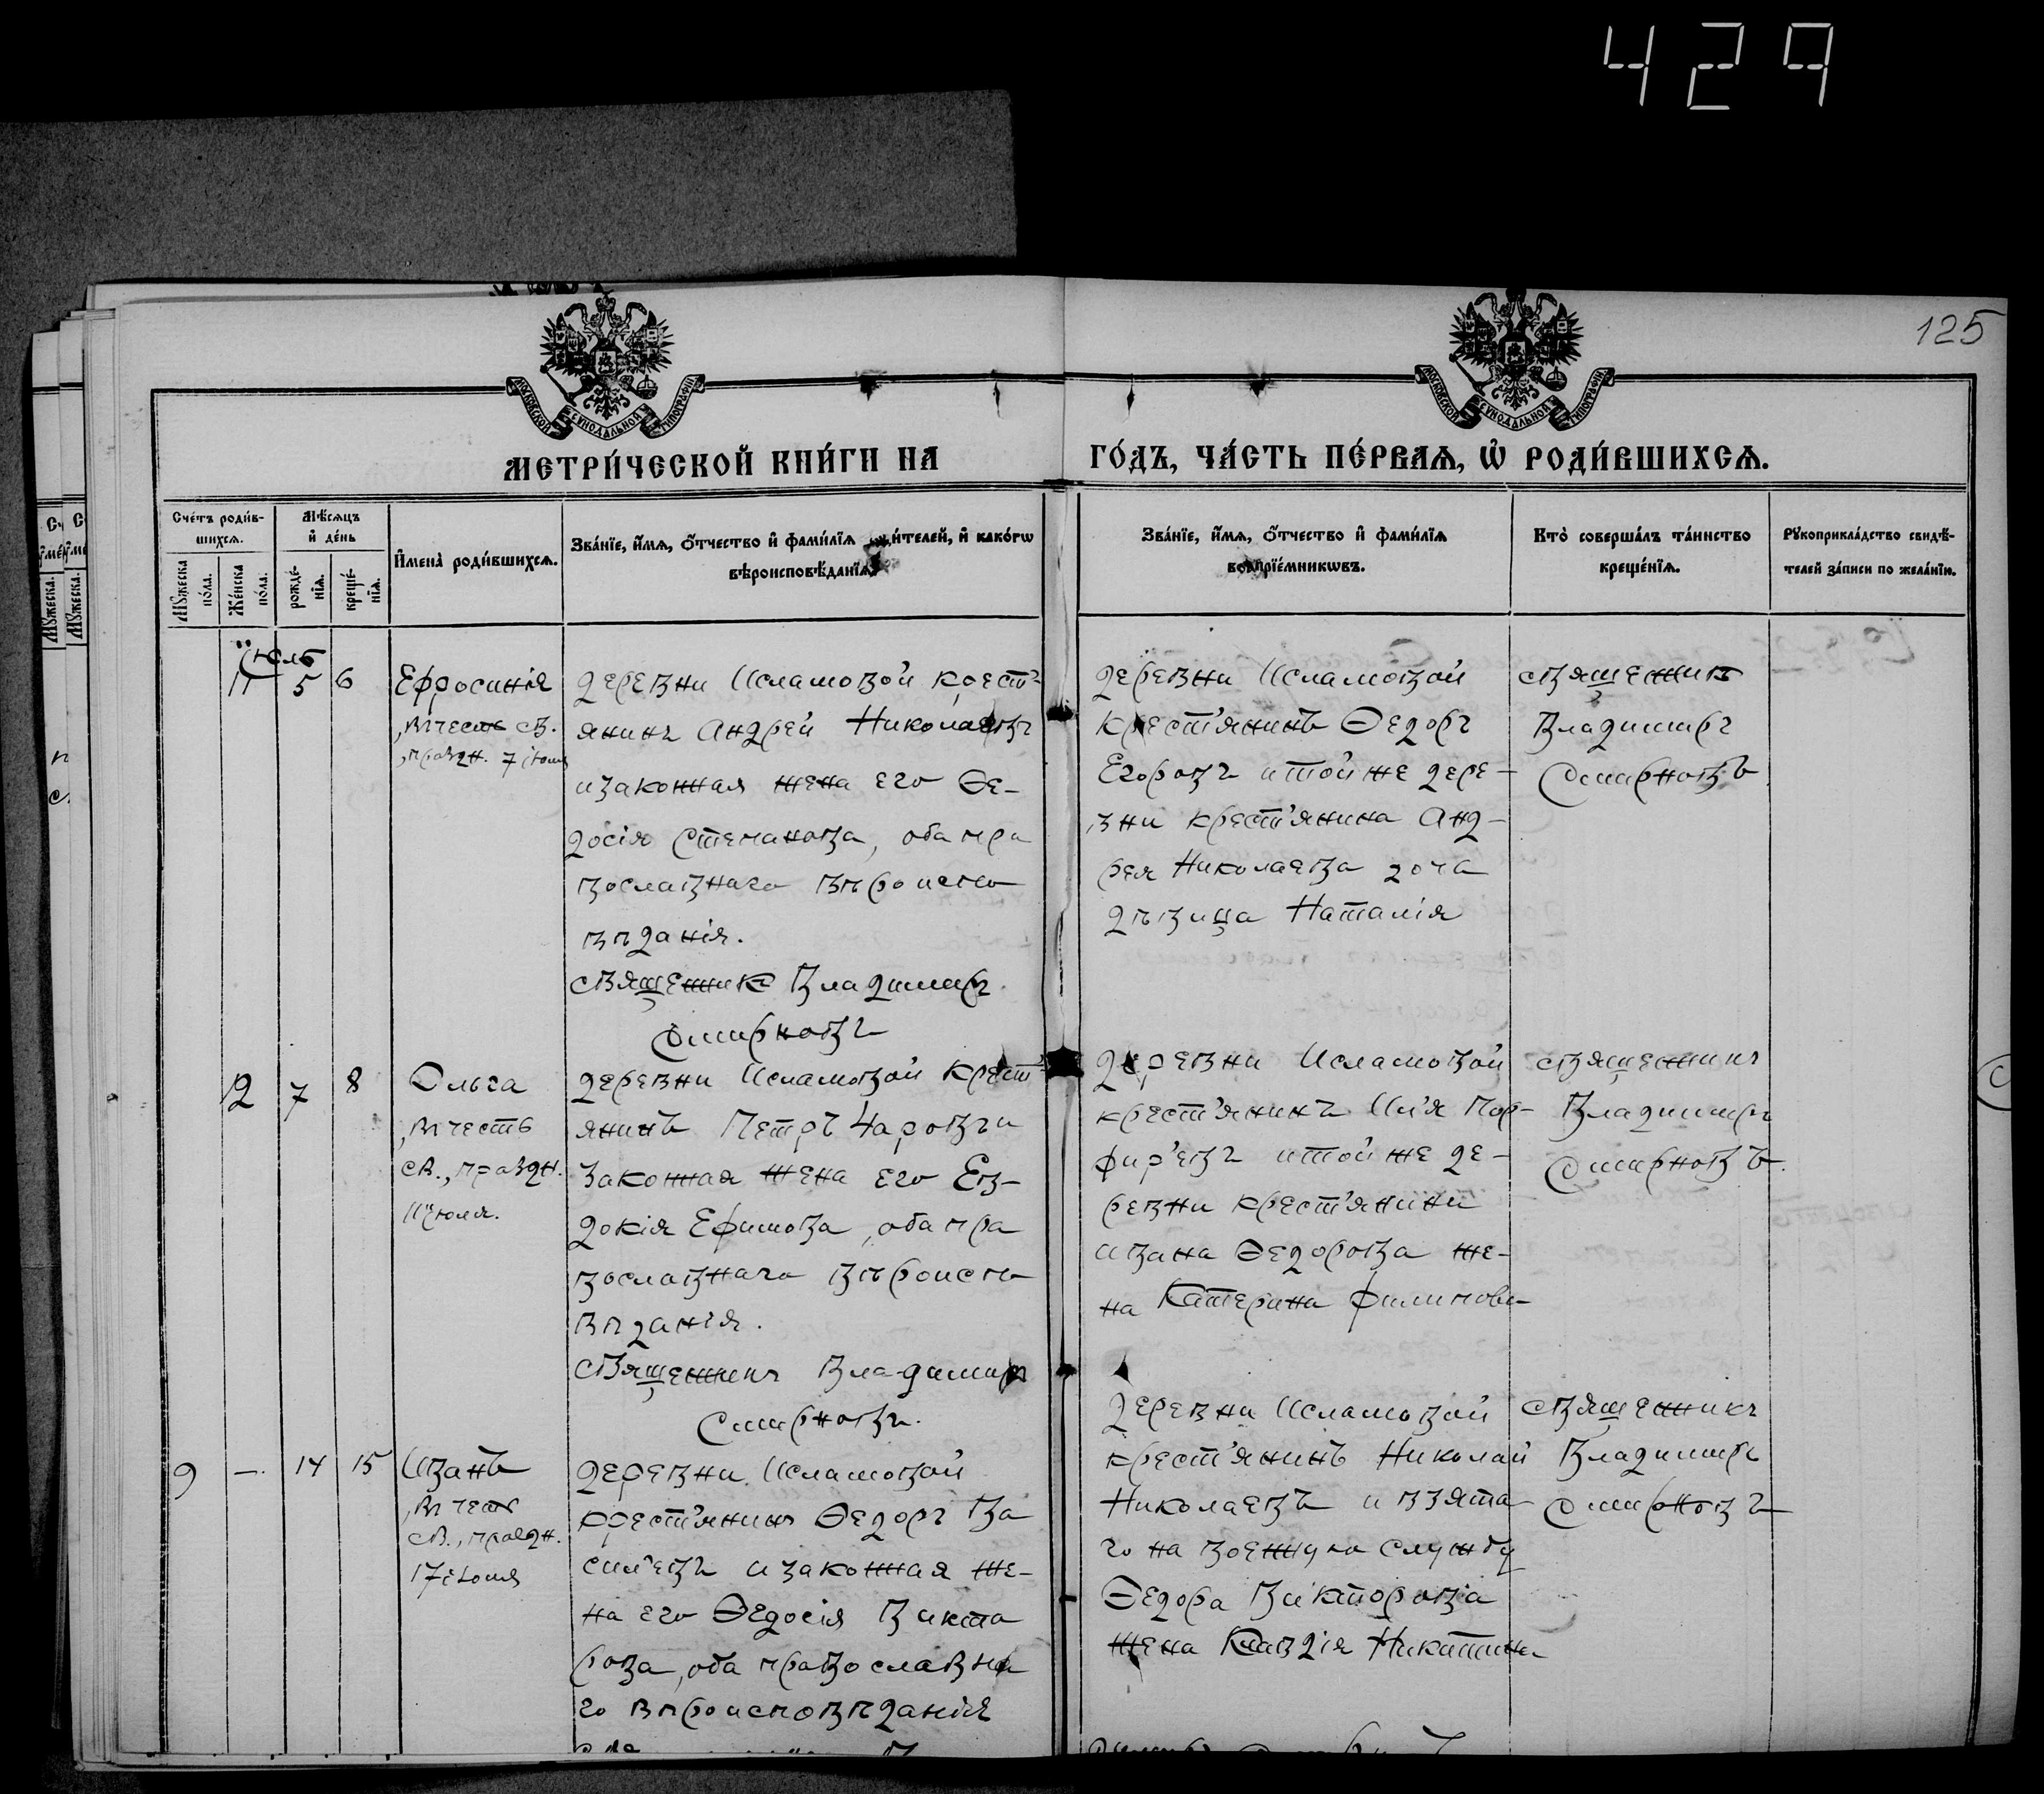 429
125
МОСКОВСКОЙ СѴНОДАЛЬНОЙ ТИПОГРАФІИ
МОСКОВСКОЙ СѴНОДАЛЬНОЙ ТИПОГРАФІИ
МЕТРИ́ЧЕСКОЙ КНИ́ГИ НА ГО́ДЪ, ЧА́СТЬ ПЕ́РВАѦ, Ѡ҆ РОДИ́ВШИХСѦ.
Сче́тъ роди́в-
шихсѧ.
Мꙋ́жеска
по́ла.
Же́нска
по́ла.
Мѣ́сѧцъ
и҆ де́нь
рожде́-
нїѧ.
креще́-
нїѧ.
И҆мена̀ роди́вшихсѧ.
Зва́нїе, и҆́мѧ, ѻ҆́тчество и҆ фами́лїѧ роди́телей, и҆ како́гѡ
вѣроисповѣ́данїѧ.
Зва́нїе, и҆́мѧ, ѻ҆́тчество и҆ фами́лїѧ
воспрїе́мникѡвъ.
Кто̀ соверша́лъ та́инство
креще́нїѧ.
Рꙋкоприкла́дство свидѣ́-
телей за́писи по жела́нїю.
Іюль
11 5 6
Ефросинія
въ честь св.
, праздн. 7 іюля
деревни Исламовой крест-
янинъ Андрей Николаевъ
и законная жена его Ѳе-
досія Степанова, оба пра
вославнаго вѣроиспо
вѣданія.
Священникъ Владимиръ
Смирновъ
деревни Исламовой
крестьянинъ Ѳедоръ
Егоровъ и той же дере-
вни крестьянина Анд-
рея Николаева дочь
дѣвица Наталія
Священникъ
Владимиръ
Смирновъ
12 7 8
Ольга
въ честь
св., праздн.
11 іюля.
деревни Исламовой крест
янинъ Петръ и
законная жена его Ев-
докія Ефимова, оба пра
вославнаго вѣроиспо
вѣданія.
Священникъ Владимиръ
Смирновъ.
деревни Исламовой
крестьянинъ Илья Пор-
фирьевъ и той же де-
ревни крестьянина
Ивана Ѳедорова же-
на Катерина Филипова
Священникъ
Владимиръ
Смирновъ.
9 —. 14 15
Иванъ
въ честь
св., праздн.
17 іюля
деревни Исламовой
крестьянинъ Ѳедоръ Ва
сильевъ и законная же-
на его Ѳедосія Викто
рова, оба православна
го вѣроисповѣданія
деревни Исламовой
крестьянинъ Николай
Николаевъ и взята-
го на военную службу
Ѳедора Викторова
жена Клавдія Никитина
Священникъ
Владимиръ
Смирновъ